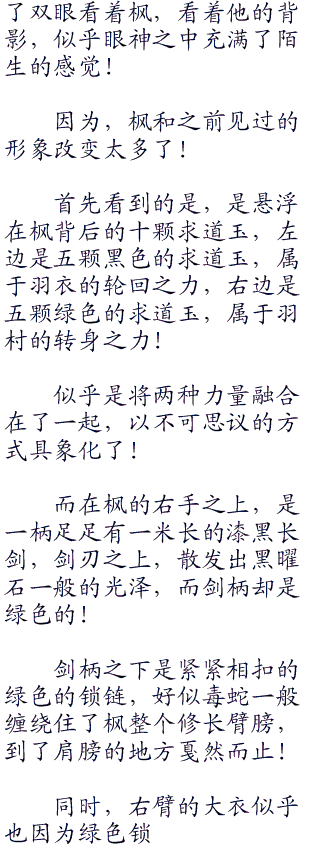 了双眼看着枫，看着他的背
影，似乎眼神之中充满了陌
生的感觉！
因为，枫和之前见过的
形象改变太多了！
首先看到的是，是悬浮
在枫背后的十颗求道玉，左
边是五颗黑色的求道玉，属
于羽衣的轮回之力，右边是
五颗绿色的求道玉，属于羽
村的转身之力！
似乎是将两种力量融合
在了一起，以不可思议的方
式具象化了！
而在枫的右手之上，是
一柄足足有一米长的漆黑长
剑，剑刃之上，散发出黑曜
石一般的光泽，而剑柄却是
绿色的！
剑柄之下是紧紧相扣的
绿色的锁链，好似毒蛇一般
缠绕住了枫整个修长臂膀，
到了肩膀的地方戛然而止！
同时，右臂的大衣似乎
也因为绿色锁